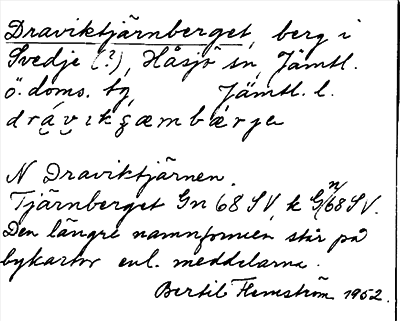 Draviktjärnberget, berg i
Svedje (?), Håsjö sn, Jämtl.
ö. doms. tg, Jämtl. l.
N Draviktjärnen.
Tjärnberget Gn 68 SV, k G/n68 SV.
Den längre namnformen står på
bykartor enl. meddelarna.
Bertil Flemström 1952.